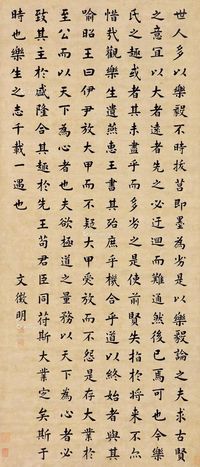 世人多以樂毅不時拔莒即墨為劣是以樂毅論之夫求古賢
之意宜以大者遠者先之必迂迴而難通然後已焉可也今樂
氏之趣或者其未盡乎而多劣之是使前賢失指於將來不亦
惜哉觀樂生遺燕惠王書其殆庶乎機合乎道以終始者與其
喻昭王曰伊尹放大甲而不疑大甲受放而不怨是存大業於
至公而以天下為心者也夫欲極道之量務以天下為心者必
致其主於盛隆合其趣於先王苟君臣同苻斯大業定矣斯于
時也樂生之志千載一遇也
文徵明